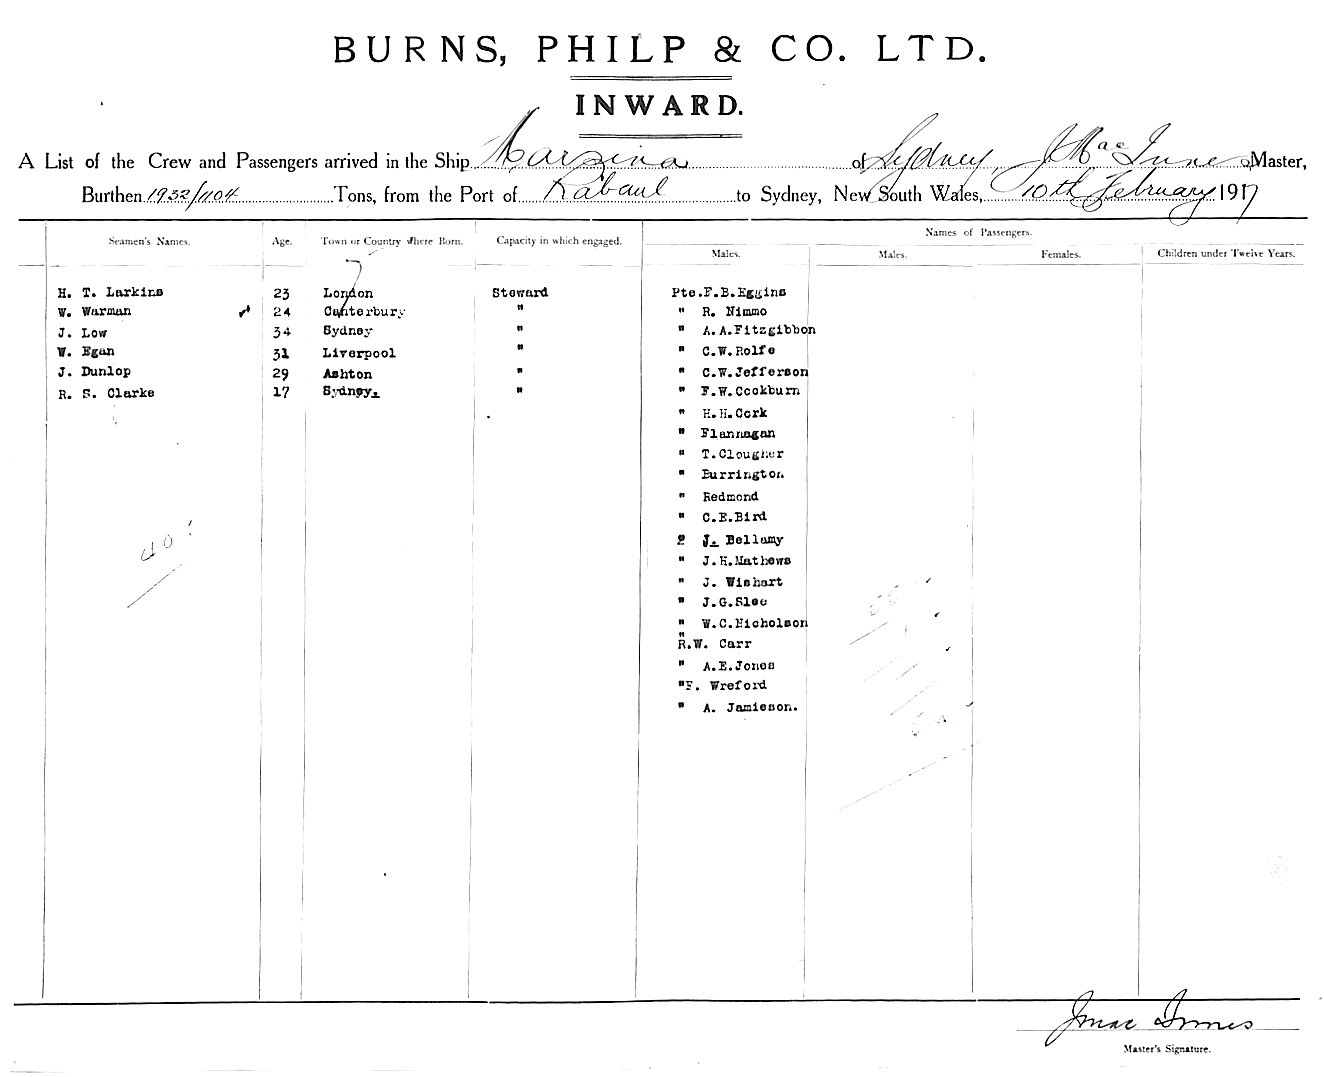 BURNS, PHILP & CO. LTD.
INWARD.
A List of the Crew and Passengers arrived in the Ship Marsina of Sydney, J Mac Innes Master,
Burthen 1932/1104 Tons, from the Port of Rabaul to Sydney, New South Wales, 10th February 1917
Names of Passengers.
Seamen's Names. Age. Town or Country Where Born. Capacity in which engaged. Males. Males. Females. Children under Twelve Years.
H. T. Larkins 23 London Steward Pte.F.B.Eggins
W. Warman 24 Canterbury " " R. Nimmo
J. Low 34 Sydney " " A.A.Fitzgibbon
W. Egan 31 Liverpool " " C.W.Rolfe
J. Dunlop 29 Ashton " " C.W.Jefferson
R. S. Clarke 17 Sydney. " " F.W.Cockburn
" H.H.Cork
" Flannagan
" T.Clougher
" Burrington
" Redmond
" C.E.Bird
2 J. Bellamy
" J.H.Mathews
" J. Wishart
" J.G.Slee
" W.C.Nicholson
" R.W. Carr
" A.E.Jones
"F. Wreford
" A. Jamieson.
40
J Mac Innes
Master's Signature.